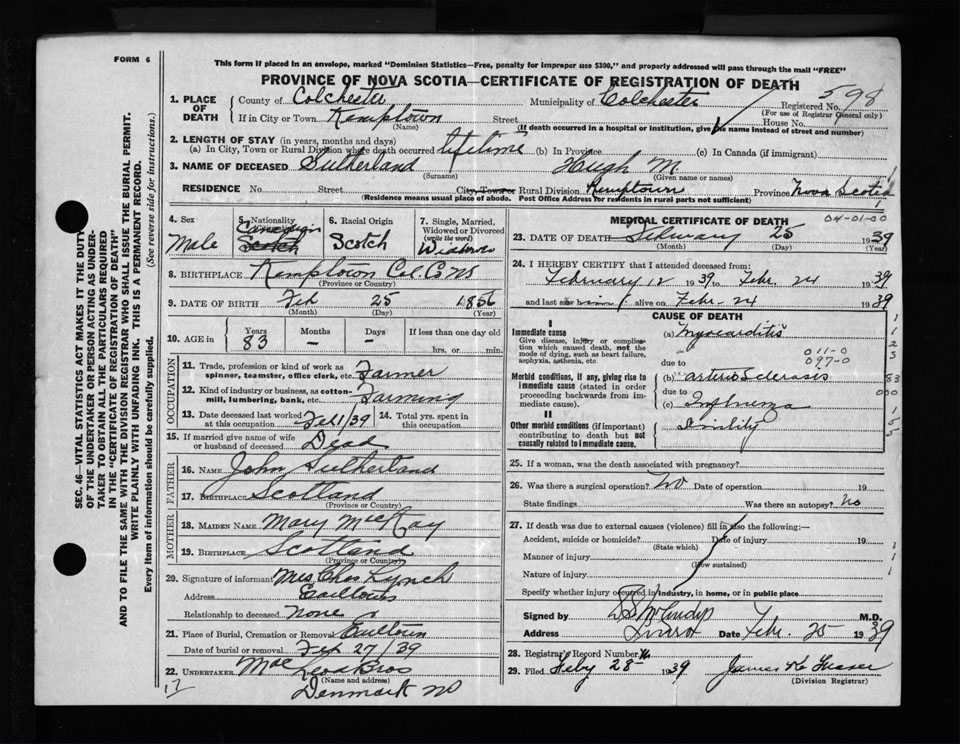 FORM 6
This form if placed in an envelope, marked "Dominion Statistics—Free, penalty for improper use $300," and properly addressed will pass through the mail "FREE"
PROVINCE OF NOVA SCOTIA—CERTIFICATE OF REGISTRATION OF DEATH
SEC. 46—VITAL STATISTICS ACT MAKES IT THE DUTY
OF THE UNDERTAKER OR PERSON ACTING AS UNDER-
TAKER TO OBTAIN ALL THE PARTICULARS REQUIRED
IN THE "CERTIFICATE OF REGISTRATION OF DEATH"
AND TO FILE THE SAME WITH THE DIVISION REGISTRAR WHO SHALL ISSUE THE BURIAL PERMIT.
WRITE PLAINLY WITH UNFADING INK. THIS IS A PERMANENT RECORD.
Every item of information should be carefully supplied. (See reverse side for instructions.)
1. PLACE OF DEATH County of Colchester Municipality of Colchester Registered No. 598
(For use of Registrar General only)
If in City or Town Kemptown Street House No.
(Name) (If death occurred in a hospital or institution, give the name instead of street and number)
2. LENGTH OF STAY (in years, months and days)
(a) In City, Town or Rural Division where death occurred lifetime (b) In Province (c) In Canada (if immigrant)
3. NAME OF DECEASED Sutherland Hugh M
(Surname) (Given name or names)
RESIDENCE No. Street City, Town or Rural Division Kemptown Province Nova Scotia
(Residence means usual place of abode. Post Office Address for residents in rural parts not sufficient)
4. Sex 5. Nationality 6. Racial Origin 7. Single, Married, Widowed or Divorced (write the word)
Male Canadian Scotch Scotch Widower
8. BIRTHPLACE Kemptown Col. Co NS
(Province or Country)
9. DATE OF BIRTH Feb 25 1856
(Month) (Day) (Year)
10. AGE in Years Months Days If less than one day old
83 – – hrs. or min.
OCCUPATION
11. Trade, profession or kind of work as spinner, teamster, office clerk, etc. Farmer
12. Kind of industry or business, as cotton-mill, lumbering, bank, etc. Farming
13. Date deceased last worked at this occupation Feb 1/39 14. Total yrs. spent in this occupation
15. If married give name of wife or husband of deceased Dead
FATHER
16. NAME John Sutherland
17. BIRTHPLACE Scotland
MOTHER
18. MAIDEN NAME Mary McKay
19. BIRTHPLACE Scotland
(Province or Country)
20. Signature of informant Mrs Chas Lynch
Address Earltown
Relationship to deceased None
21. Place of Burial, Cremation or Removal Earltown
Date of burial or removal Feb 27/39
22. UNDERTAKER Bros
(Name and address)
Denmark NS
17
MEDICAL CERTIFICATE OF DEATH 04-01-00
23. DATE OF DEATH February 25 1939
(Month) (Day) (Year)
24. I HEREBY CERTIFY that I attended deceased from:
February 12 1939 to Feb. 24 1939
and last saw him alive on Febr. 24 1939
CAUSE OF DEATH
I
Immediate cause
Give disease, injury or complication which caused death, not the mode of dying, such as heart failure, asphyxia, asthenia, etc.
(a) Myocarditis
due to
011-0
097-0
Morbid conditions, if any, giving rise to immediate cause (stated in order proceeding backwards from immediate cause).
(b) arterio Sclerosis
due to
(c) Influenza
II
Other morbid conditions (if important) contributing to death but not causally related to immediate cause.
Senility
25. If a woman, was the death associated with pregnancy?
26. Was there a surgical operation? No Date of operation 19
State findings Was there an autopsy? No
27. If death was due to external causes (violence) fill in also the following:—
Accident, suicide or homicide? Date of injury 19
(State which)
Manner of injury
(How sustained)
Nature of injury
Specify whether injury occurred in industry, in home, or in public place
Signed by M.D.
Address Truro Date Febr. 25 1939
28. Registrar's Record Number
29. Filed Feby 28 1939 James K Fraser
(Division Registrar)